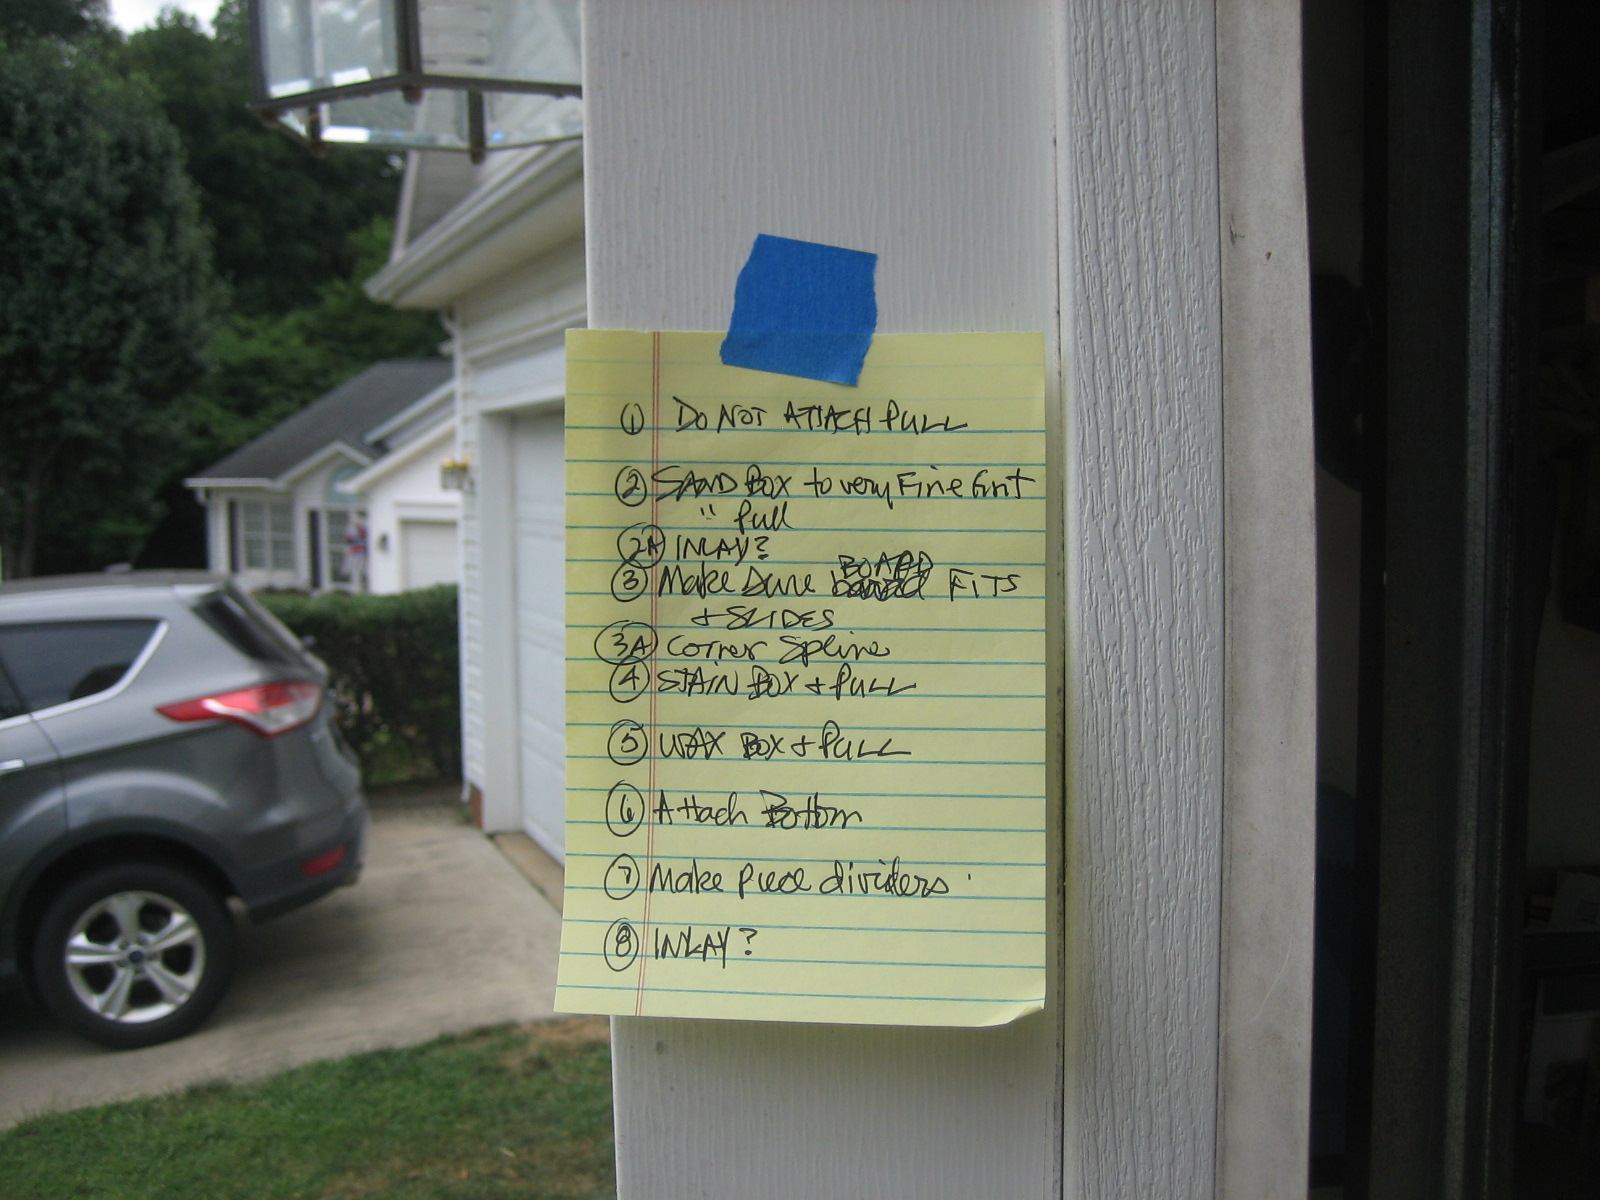 1 DO NOT ATTACH PULL
2 SAND BOX to very Fine Grit
" Pull
2A INLAY?
3 Make Sure BOARD FITS
+ SLIDES
3A Corner Spline
4 STAIN BOX + PULL
5 WAX BOX + PULL
6 Attach Bottom
7 Make piece dividers
8 INLAY?